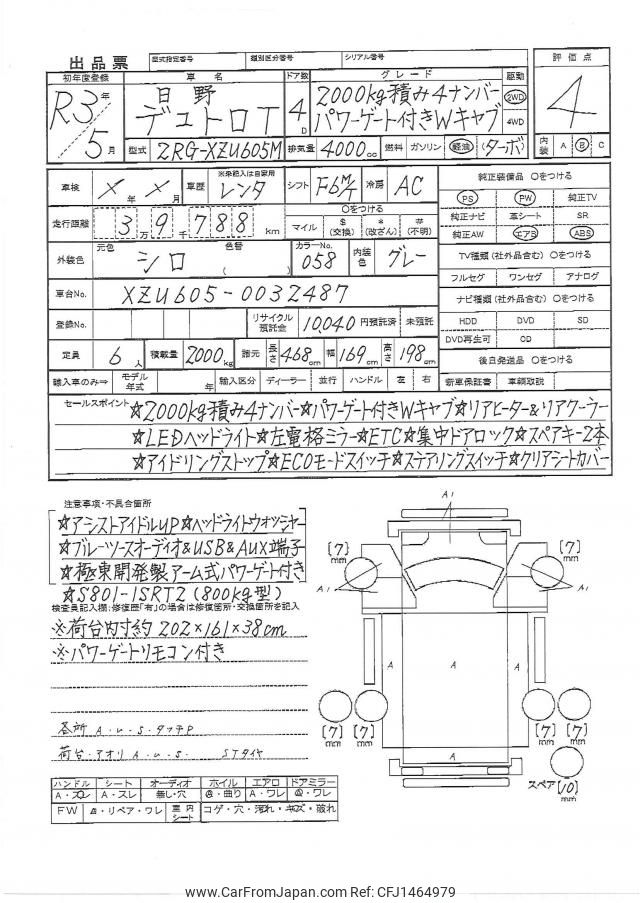 出品票 型式指定番号 類別区分番号 シリアル番号 評価点
初年度登録 車名 ドア数 グレード 駆動
R3年 日野 4D 2000kg積み4ナンバー 2WD 4
5月 デュトロT パワーゲート付きWキャブ 4WD
型式 2RG-XZU605M 排気量 4000cc 燃料 ガソリン 軽油 (ターボ) 内装 A B C
車検 X年X月 車歴 ※未記入は自家用 レンタ シフト F6M/T 冷房 AC 純正装備品 ○をつける
PS PW 純正TV
走行距離 3万9千788km ○をつける マイル $(交換) *(改ざん) #(不明) 純正ナビ 革シート SR
純正AW エアB ABS
外装色 元色 シロ 色替 ( ) カラーNo. 058 内装色 グレー TV種類(社外品含む)○をつける
フルセグ ワンセグ アナログ
車台No. XZU605-0032487 ナビ種類(社外品含む)○をつける
登録No. リサイクル預託金 10,040円預託済 未預託 HDD DVD SD
DVD再生可 CD
定員 6人 積載量 2000kg 諸元 長さ468cm 幅169cm 高さ198cm 後日発送品 ○をつける
輸入車のみ⇒ モデル年式 年 輸入区分 ディーラー 並行 ハンドル 左 右 新車保証書 車輌取説
セールスポイント ☆2000kg積み4ナンバー☆パワーゲート付きWキャブ☆リアヒーター&リアクーラー
☆LEDヘッドライト☆左電格ミラー☆ETC☆集中ドアロック☆スペアキー2本
☆アイドリングストップ☆ECOモードスイッチ☆ステアリングスイッチ☆クリアシートカバー
注意事項・不具合箇所
☆アシストアイドルUP☆ヘッドライトウオッシャー
☆ブルーツースオーディオ&USB&AUX端子
☆極東開発製アーム式パワーゲート付き
☆S801-1SRT2(800kg型)
検査員記入欄:修復歴「有」の場合は修復箇所・交換箇所を記入
※荷台内寸約202×161×38cm
※パワーゲートリモコン付き
各所 A・U・S・タッチP
荷台・アオリ A・U・S・ STタイヤ
ハンドル シート オーディオ ホイル エアロ ドアミラー
A・スレ A・スレ 無し・穴 曲り A・ワレ ワレ
FW リペア・ワレ 室内シート コゲ・穴・汚れ・キズ・破れ
A1
[7]mm [7]mm
A1 A1
A A A
[7]mm [7]mm [7]mm [7]mm
A
スペア[10]mm
www.CarFromJapan.com Ref: CFJ1464979